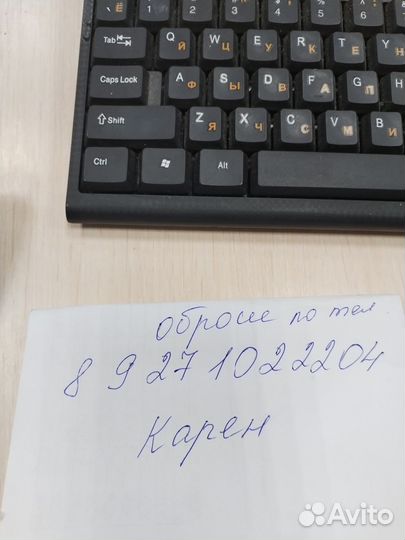 Ё 1 2 3 4 5 6
Tab Q Й W Ц E У R К T Е Y Н
Caps Lock A Ф S Ы D В F А G П H
Shift Z Я X Ч C С V М B И
Ctrl Alt
по тел
8 9 27 1022204
Карен
Avito